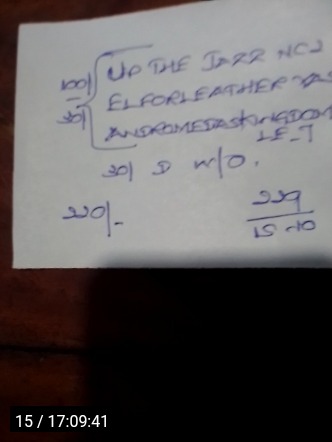 100/
30/
UP THE JAZZ NC2
ELFORLEATHER
ANDROMEDASKINGDOM
30/ D W/O.
220/-
229
15-10
15 / 17:09:41